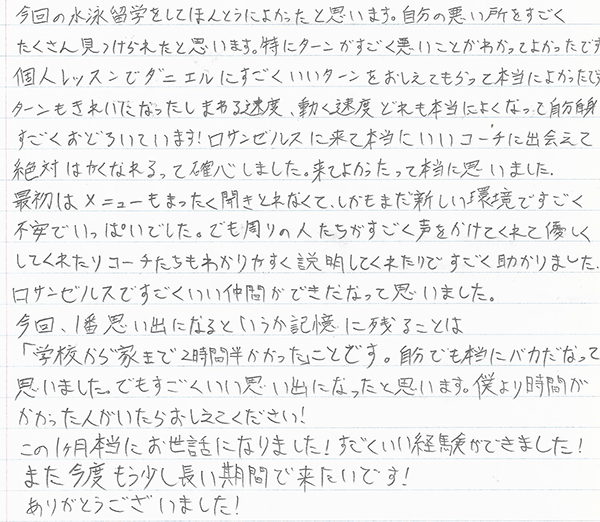 今回の水泳留学をしてほんとうによかったと思います。自分の悪い所をすごく
たくさん見つけられたと思います。特にターンがすごく悪いことがわかってよかったです
個人レッスンでダニエルにすごくいいターンをおしえてもらって本当によかったです
ターンもきれいになったしまわる速度、動く速度どれも本当によくなって自分自身
すごくおどろいています!ロサンゼルスに来て本当にいいコーチに出会えて
絶対はやくなれるって確心しました。来てよかったって本当に思いました.
最初はメニューもまったく聞きとれなくて、しかもまだ新しい環境ですごく
不安でいっぱいでした。でも周りの人たちがすごく声をかけてくれて優しく
してくれたりコーチたちもわかりやすく説明してくれたりですごく助かりました.
ロサンゼルスですごくいい仲間ができたなって思いました。
今回、1番思い出になるというか記憶に残ることは
「学校から家まで2時間半かかった」ことです。自分でも本当にバカだなって
思いました。でもすごくいい思い出になったと思います。僕より時間が
かかった人がいたらおしえてください!
この1ヶ月本当にお世話になりました!すごくいい経験ができました!
また今度もう少し長い期間で来たいです!
ありがとうございました!